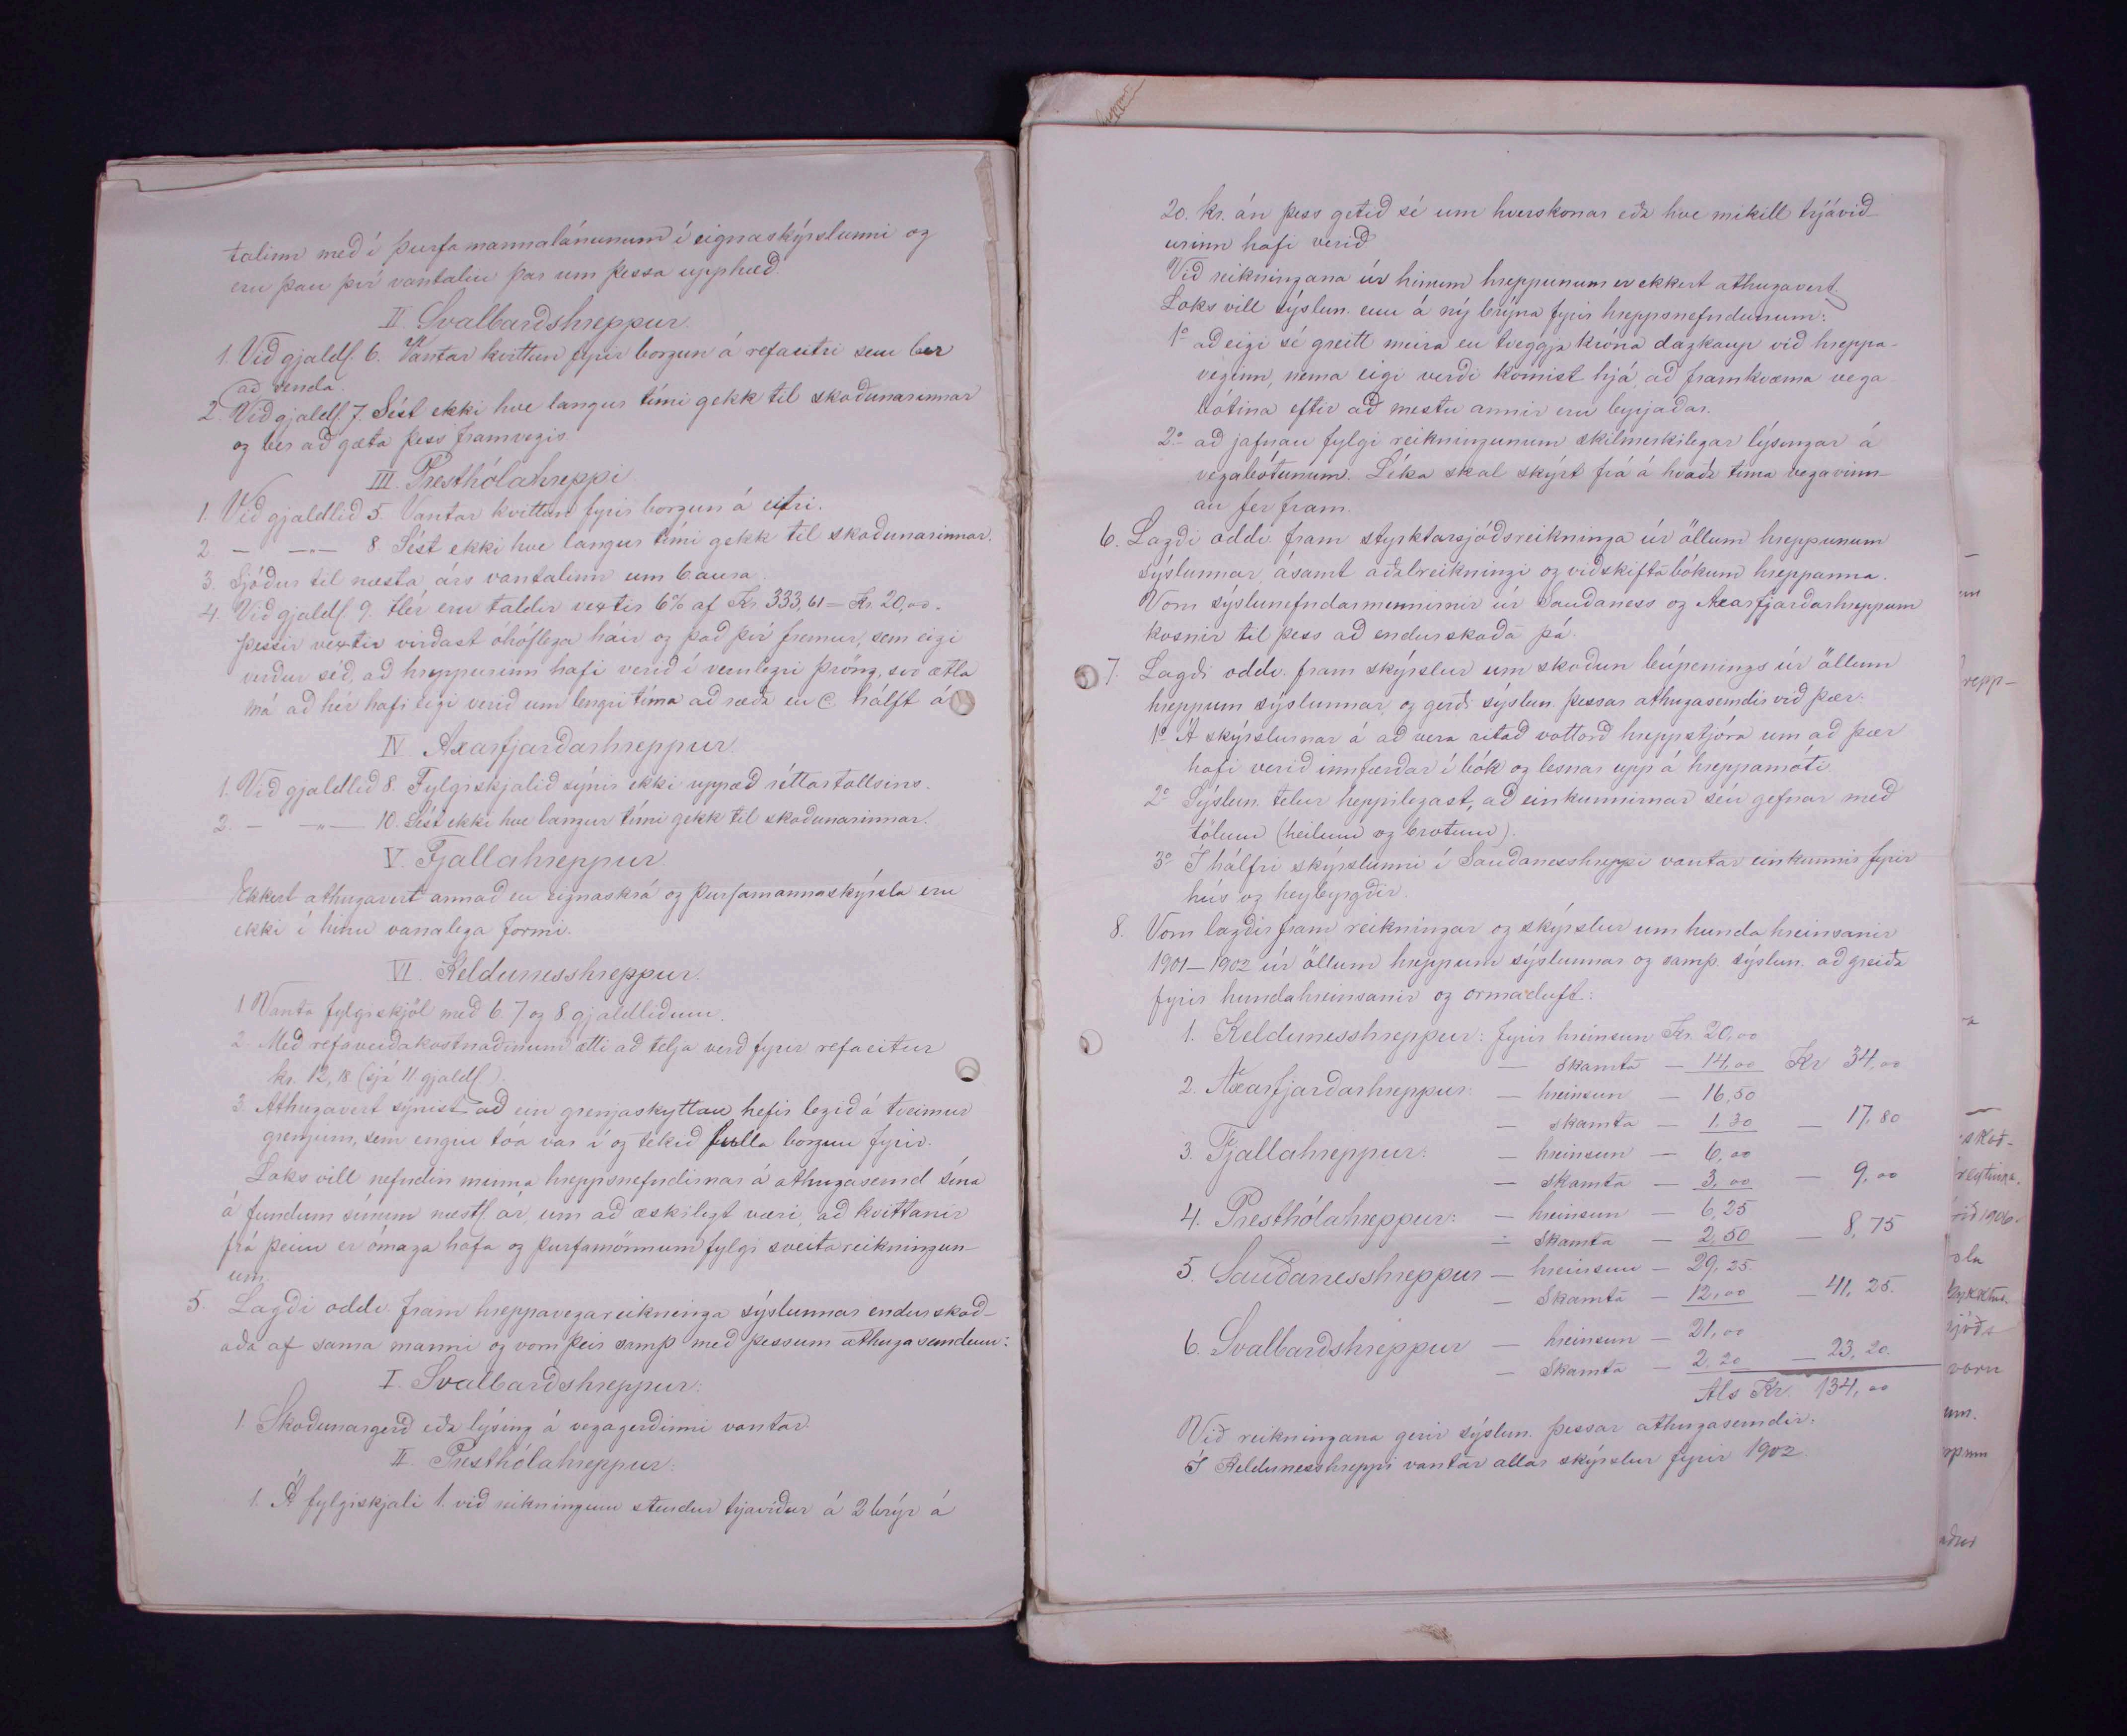 talinn með í þurfamannalánunum í eignaskýrslunni og
eru þau því vantalin þar um þessa upphæð.
II. Svalbarðshreppur.
1. Við gjaldl. 6. Vantar kvittun fyrir borgun á refaeitri sem ber
að senda.
2. Við gjaldl. 7. Sést ekki hve langur tími gekk til skoðunarinnar
og ber að gæta þess framvegis.
III. Presthólahreppi
1. Við gjaldlið 5. Vantar kvittun fyrir borgun á eitri.
2 — —„— 8. Sést ekki hve langur tími gekk til skoðunarinnar.
3. Sjóður til næsta árs vantalinn um 6 aura.
4. Við gjaldl. 9. Hér eru taldir vextir 6% af Kr. 333,61 — Kr. 20,00.
Þessir vextir virðast óhóflega háir og það því fremur, sem eigi
verður séð, að hreppurinn hafi verið í verulegri þröng, svo ætla
má að hér hafi eigi verið um lengri tíma að ræða en c. hálft ár
IV. Axarfjarðarhreppur.
1. Við gjaldlið 8. Fylgiskjalið sýnir ekki uppæð réttartollsins.
2. — —„— 10. Sést ekki hve langur tími gekk til skoðunarinnar.
V. Fjallahreppur.
Ekkert athugavert annað en eignaskrá og þurfamannaskýrsla eru
ekki í hinu vanalega formi.
VI. Keldunesshreppur.
1. Vanta fylgiskjöl með 6 7 og 8 gjaldliðum.
2. Með refaveiðakostnaðinum ætti að telja verð fyrir refaeitur
kr. 12,18 (sjá 11 gjaldl.).
3. Athugavert sýnist að ein grenjaskyttan hefir legið á tveimur
grenjum, sem engin tóa var í og tekið fulla borgun fyrir.
Loks vill nefndin minna hreppsnefndirnar á athugasemd sína
á fundum sínum næstl. ár, um að æskilegt væri, að kvittanir
frá þeim er ómaga hafa og þurfamönnum fylgi sveitareikningun-
um
5. Lagði oddv. fram hreppavegareikninga sýslunnar endurskoð-
aða af sama manni og voru þeir samþ með þessum athugasemdum:
I. Svalbarðshreppur:
1. Skoðunargerð eða lýsing á vegagerðinni vantar.
II. Presthólahreppur:
1. Á fylgiskjali 1. við reikninginn stendur trjáviður á 2 brýr á
20. kr. án þess getið sé um hverskonar eða hve mikill trjávið-
urinn hafi verið
Við reikningana úr hinum hreppunum er ekkert athugavert.
Loks vill sýslun. enn á ný brýna fyrir hreppsnefndunum:
1o að eigi sé greitt meira en tveggja króna dagkaup við hreppa-
veginn, nema eigi verði komist hjá, að framkvæma vega
bótina eftir að mestu annir eru byrjaðar.
2o að jafnan fylgi reikningunum skilmerkilegar lýsingar á
vegabótunum. Líka skal skýrt frá á hvaða tíma vegavinn-
an fer fram.
6. Lagði oddv. fram styrktarsjóðsreikninga úr öllum hreppunum
sýslunnar, ásamt aðalreikningi og viðskiftabókum hreppanna.
Voru sýslunefndarmennirnir úr Sauðaness og Axarfjarðarhreppum
kosnir til þess að endurskoða þá.
7. Lagði oddv. fram skýrslur um skoðun búpenings úr öllum
hreppum sýslunnar og gerði sýslun. þessar athugasemdir við þær:
1o Á skýrslurnar á að vera ritað vottorð hreppstjóra um að þær
hafi verið innfærðar í bók og lesnar upp á hreppamóti.
2o Sýslun. telur heppilegast, að einkunnirnar séu gefnar með
tölum (heilum og brotum).
3o Í hálfri skýrslunni í Sauðanesshreppi vantar einkunnir fyrir
hús og heybyrgðir.
8. Voru lagðir fram reikningar og skýrslur um hundahreinsanir
1901—1902 úr öllum hreppum sýslunnar og samþ. sýslun. að greiða
fyrir hundahreinsanir og ormaduft:
1. Keldunesshreppur: fyrir hreinsun Kr. 20,00
— skamta — 14,00 Kr 34,00
2. Axarfjarðarhreppur: — hreinsun — 16,50
— skamta — 1,30 — 17,80
3. Fjallahreppur: — hreinsun — 6,00
— skamta — 3,00 — 9,00
4. Presthólahreppur: — hreinsun — 6,25
— skamta — 2,50 — 8,75
5. Sauðanesshreppur — hreinsun — 29,25
— skamta — 12,00 — 41,25.
6. Svalbarðshreppur — hreinsun — 21,00
— skamta — 2,20 — 23,20.
Als Kr. 134,00
Við reikningana gerir sýslun. þessar athugasemdir:
Í Keldunesshreppi vantar allar skýrslur fyrir 1902.